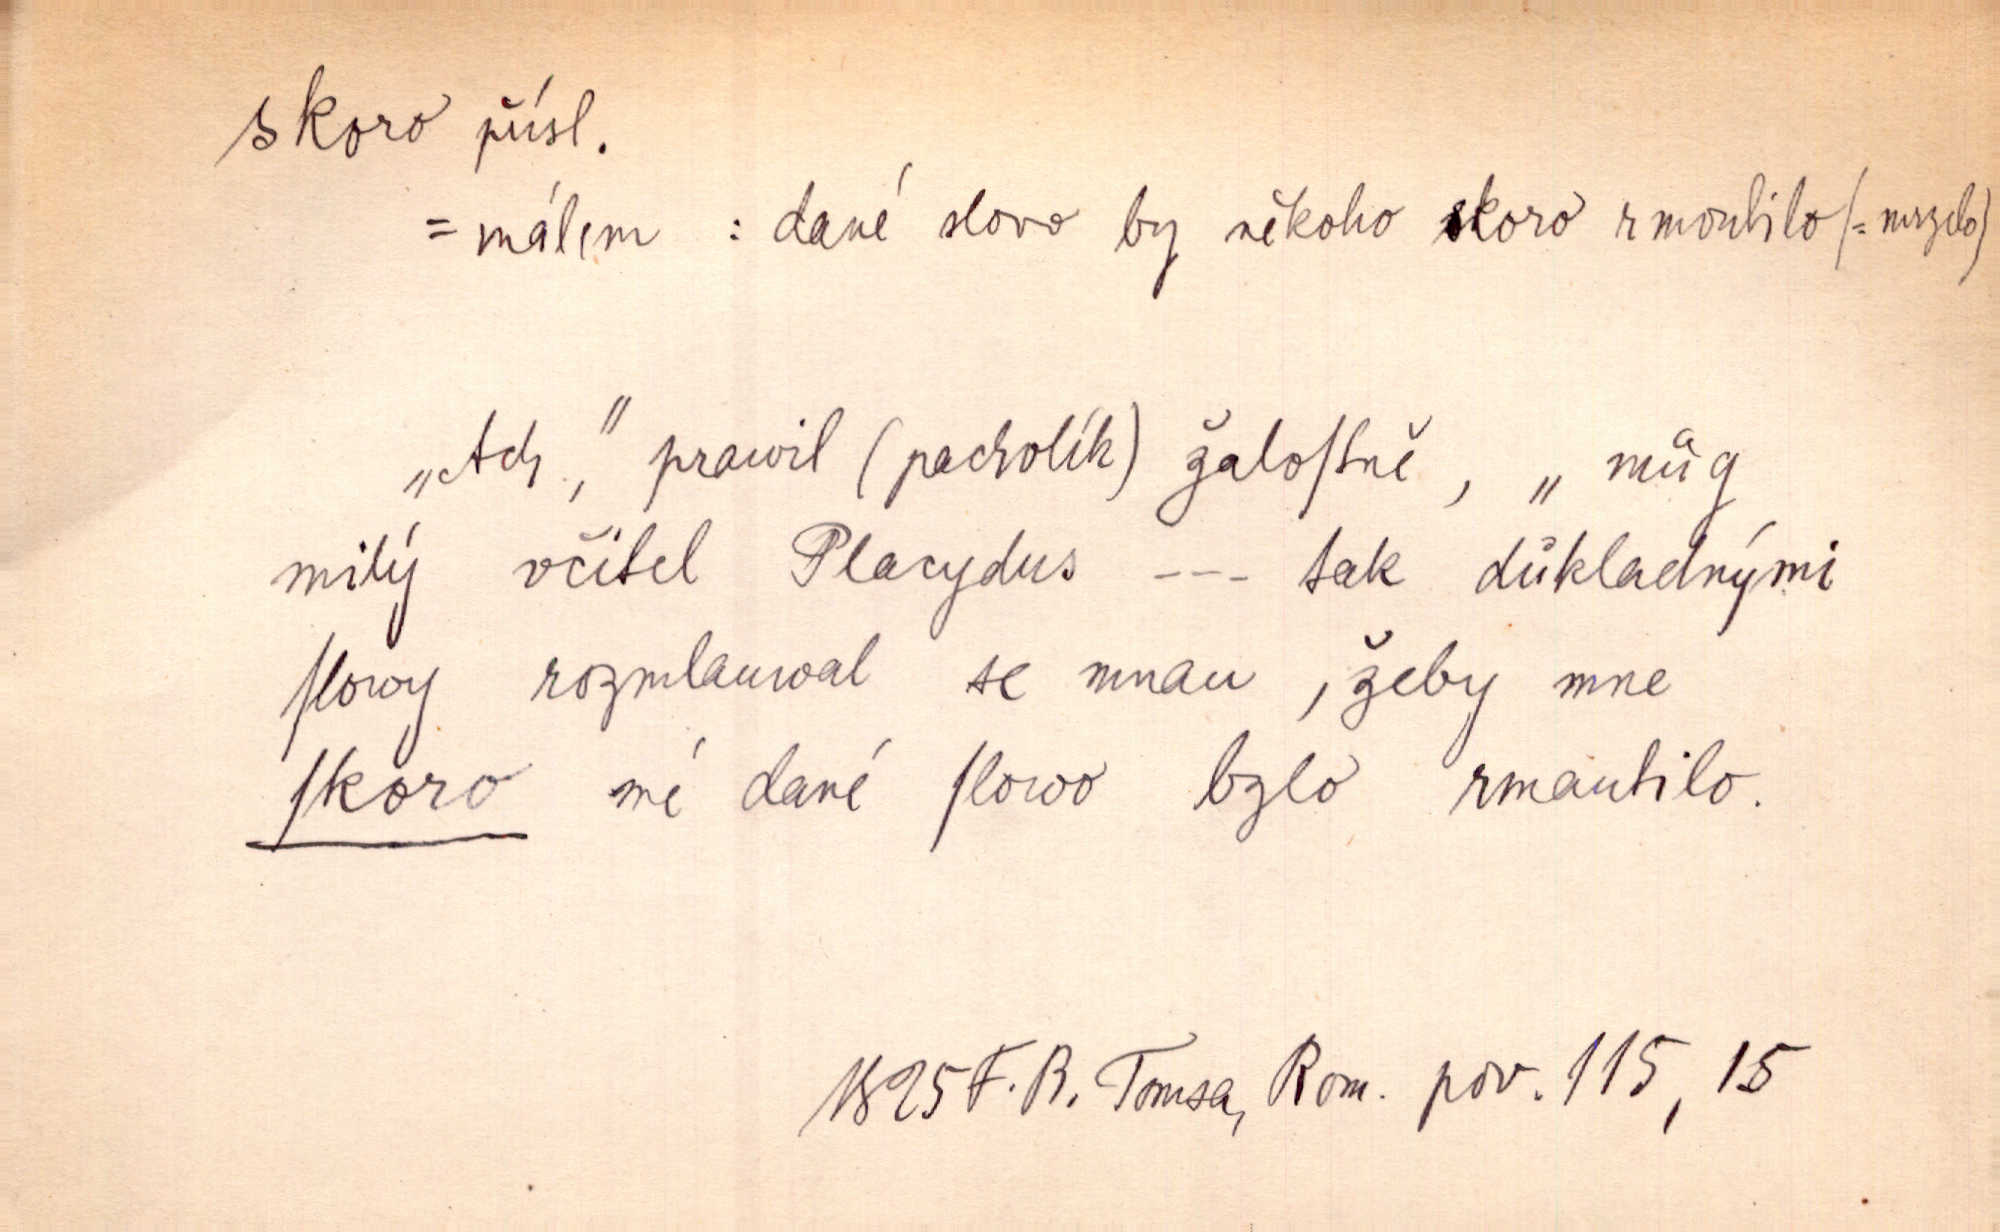 skoro přísl.
= málem : dané slovo by někoho skoro rmoutilo (= mrzelo)
„Ach," prawil (pacholík) žaloſtně, „můg
milý včitel Placydus --- tak důkladnými
ſlowy rozmlauwal se mnau, žeby mne
ſkoro mé dané ſlowo bylo rmautilo.
1825 F. B. Tomsa, Rom. pov. 115, 15